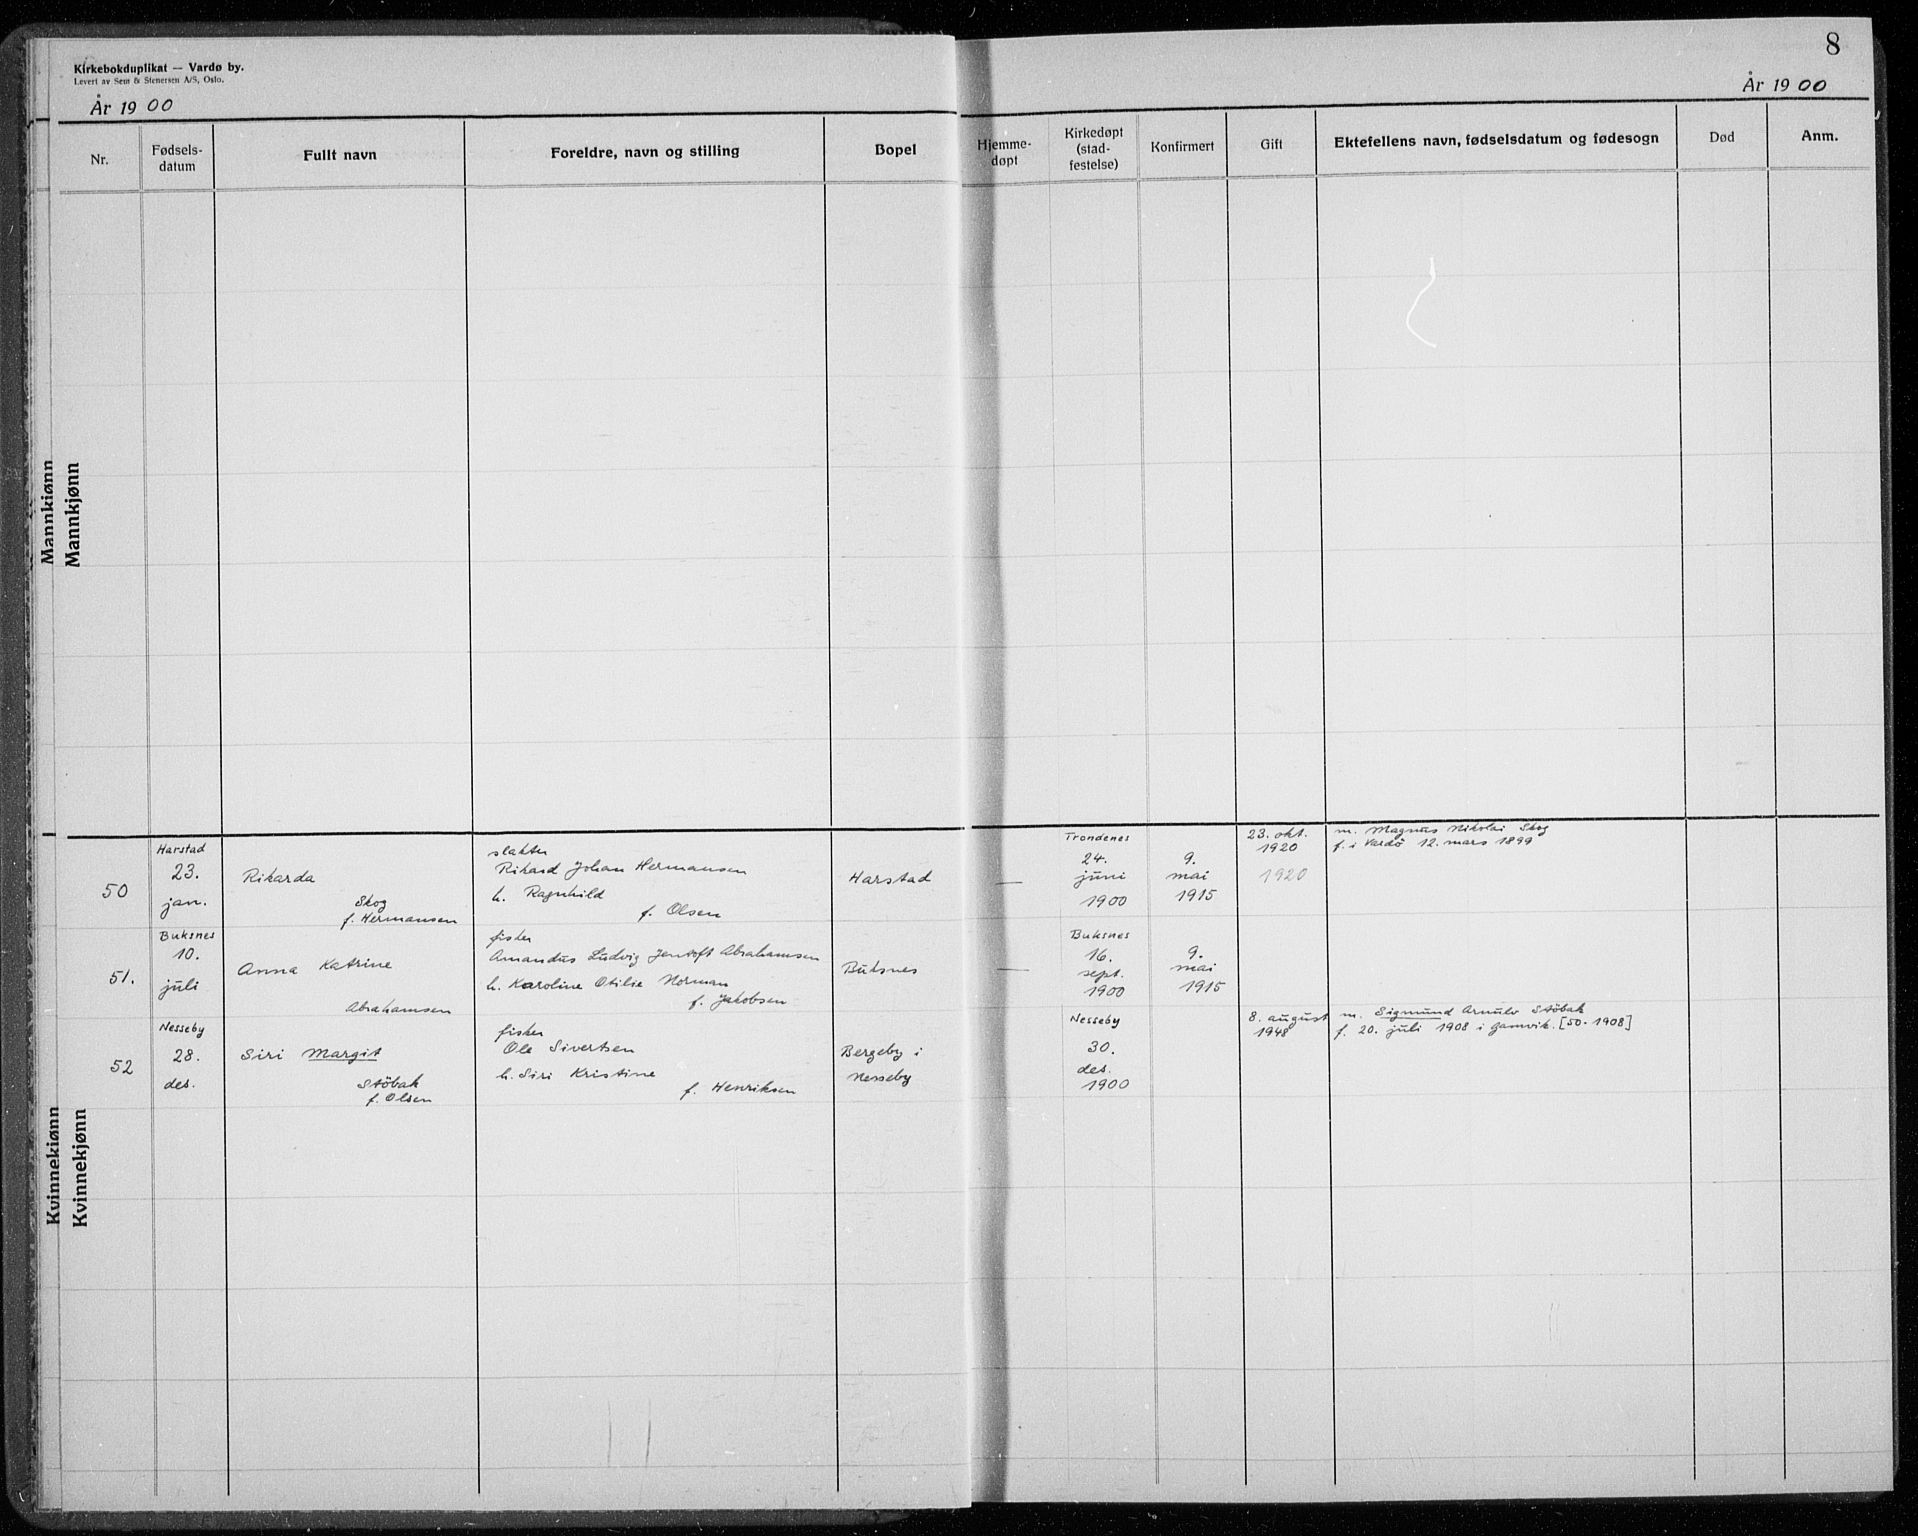 Kirkebokduplikat — Vardø by.
Levert av Sem & Stenersen A/S, Oslo.
År 1900
8
År 1900
Nr.
Fødsels-
datum
Fullt navn
Foreldre, navn og stilling
Bopel
Hjemme-
døpt
Kirkedøpt
(stad-
festelse)
Konfirmert
Gift
Ektefellens navn, fødselsdatum og fødesogn
Død
Anm.
Mannkjønn
Mannkjønn
50
Harstad
23.
jan.
Rikarda
Skog
f. Hermansen
slakter
Rikard Johan Hermansen
h. Ragnhild
f. Olsen
Harstad
—
Trondenes
24.
juni
1900
9.
mai
1915
23. okt.
1920
1920
m. Magnus Nikolai Skog
f. i Vardö 12. mars 1899
51.
Buksnes
10.
juli
Anna Katrine
Abrahamsen
fisker
Amandus Ludvig Jentoft Abrahamsen
h. Karoline Otilie Norman
f. Jakobsen
Buksnes
—
Buksnes
16.
sept.
1900
9.
mai
1915
52
Nesseby
28.
des.
Siri Margit
Stöbak
f. Olsen
fisker
Ole Sivertsen
h. Siri Kristine
f. Henriksen
Bergeby i
Nesseby
Nesseby
30.
des.
1900
8. august
1948
m. Sigmund Arnulv Stöbak
f. 20. juli 1908 i Gamvik. [50-1908]
Kvinnekjønn
Kvinnekjønn